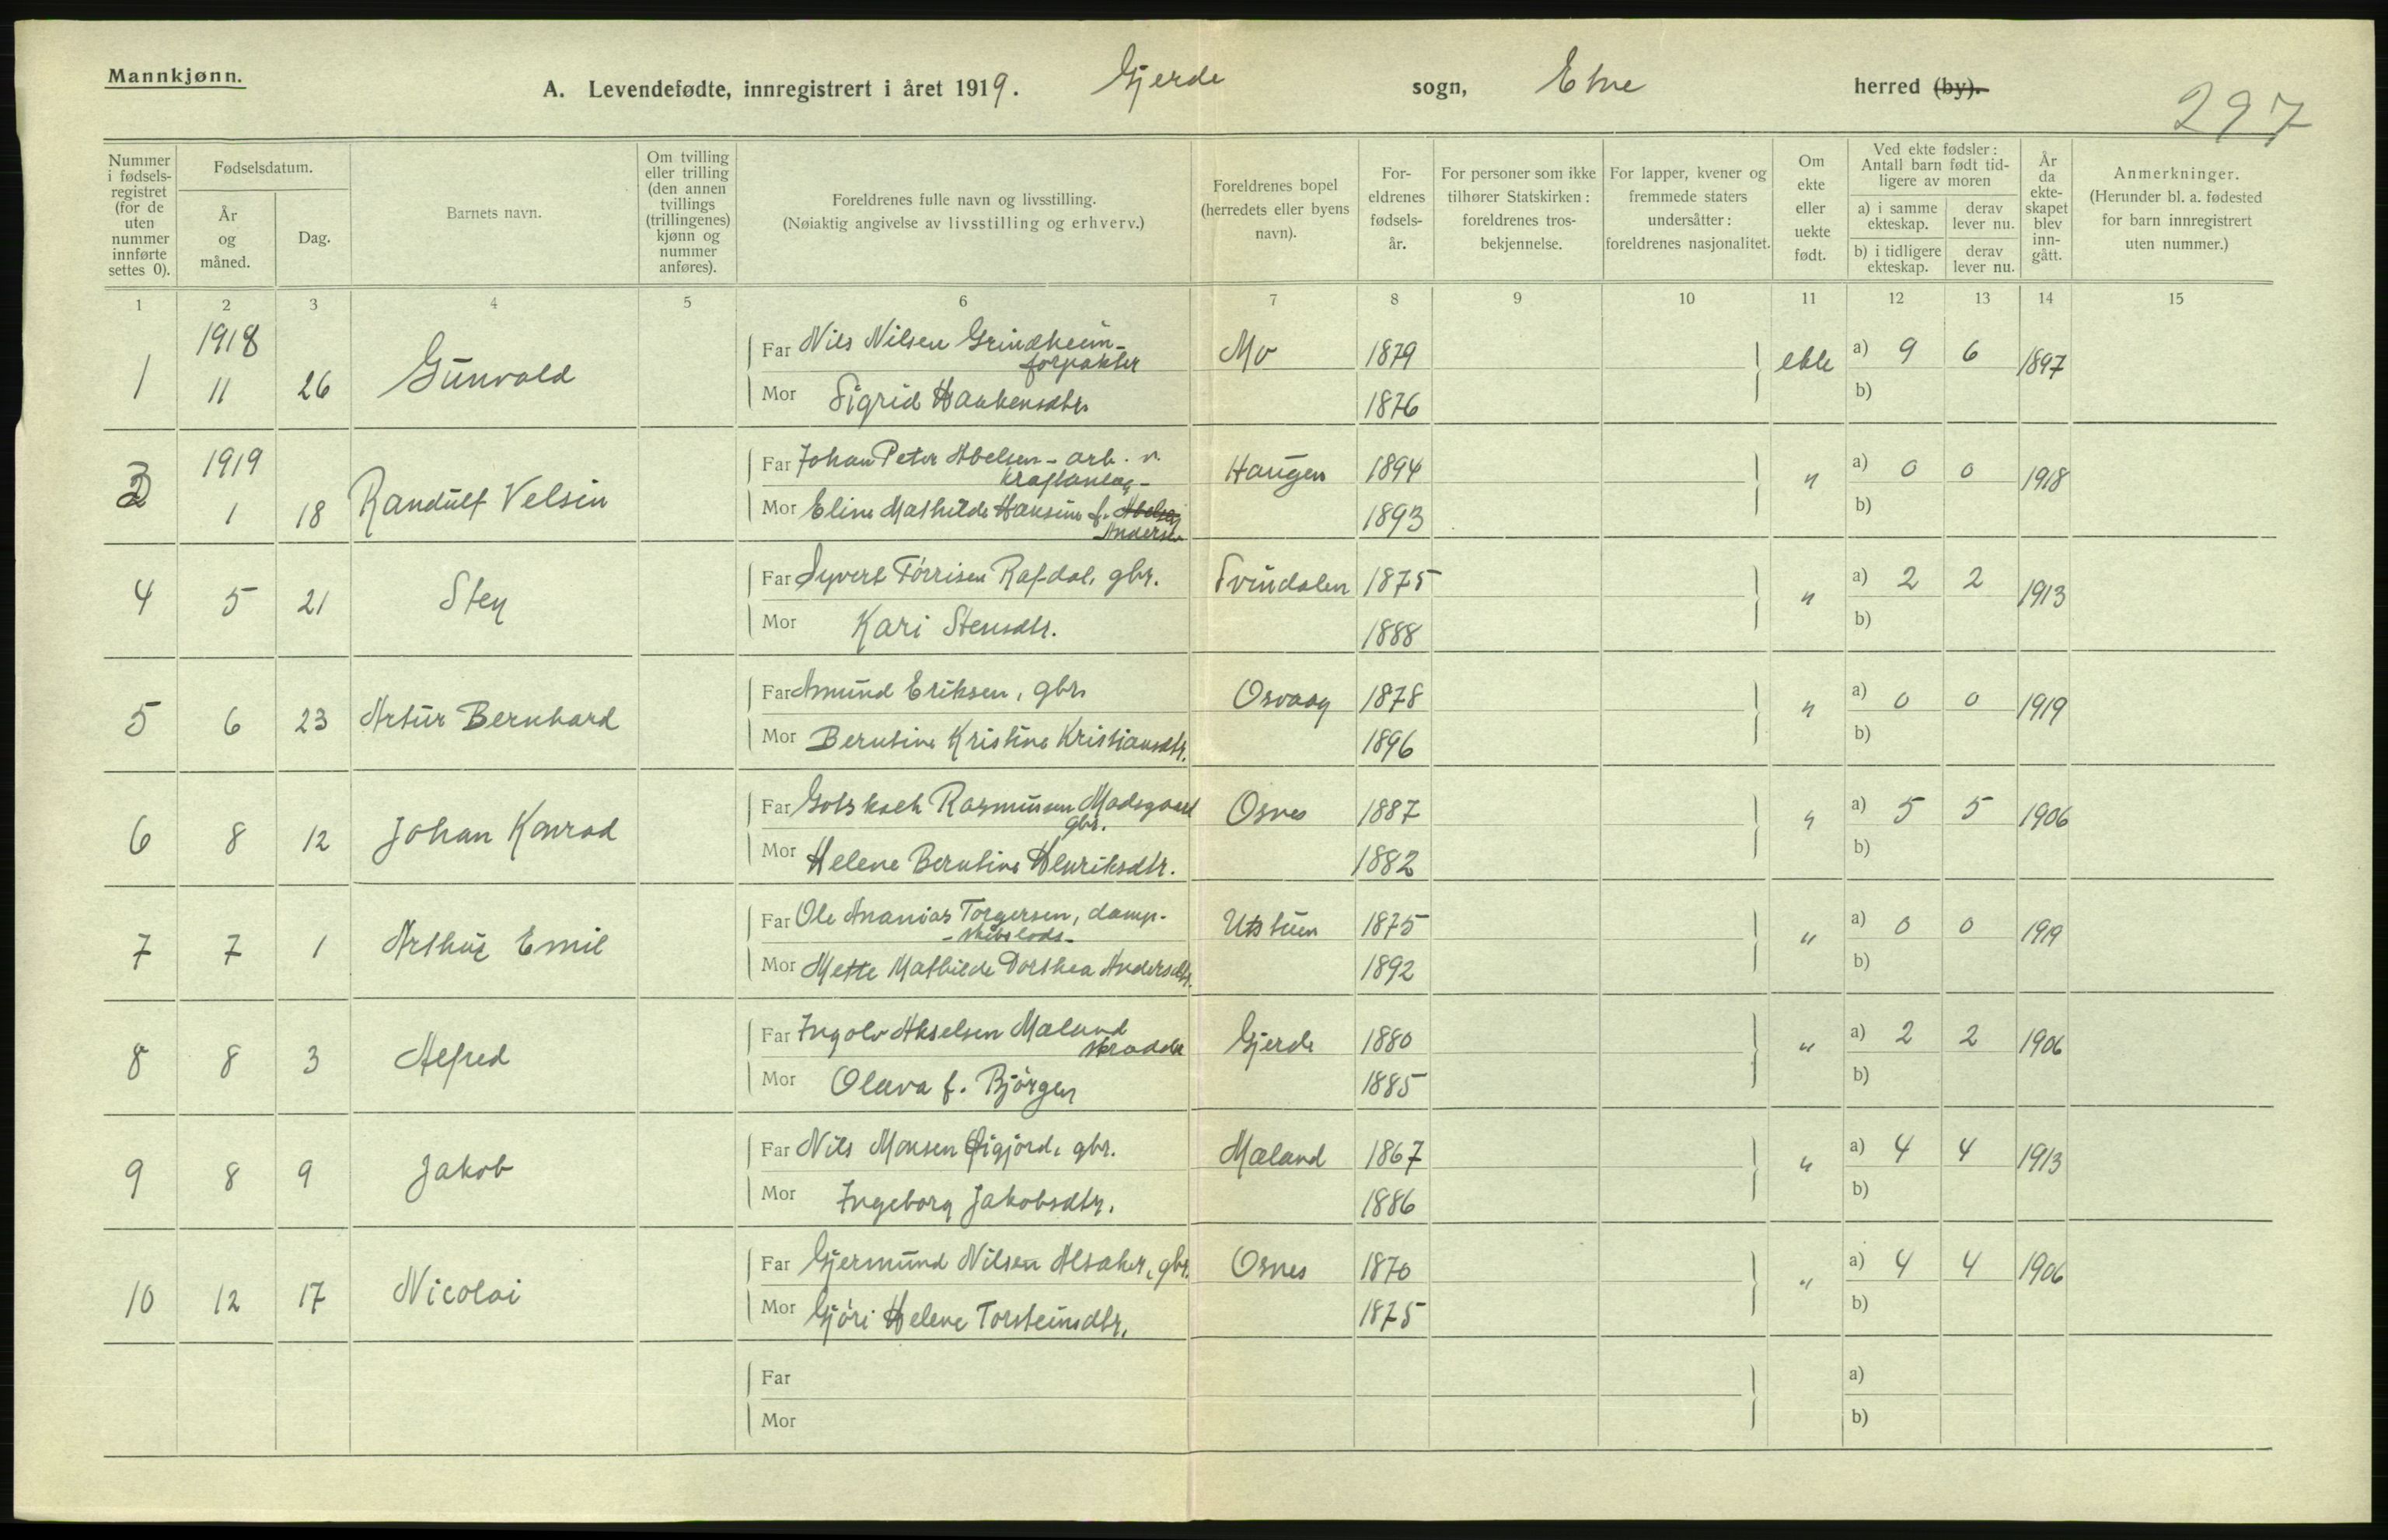 Mannkjønn.
A. Levendefødte, innregistrert i året 1919. Gjerde sogn, Etne herred (by).
297
Nummer i fødsels-registret (for de uten nummer innførte settes 0).
Fødselsdatum.
År og måned.
Dag.
Barnets navn.
Om tvilling eller trilling (den annen tvillings (trillingenes) kjønn og nummer anføres).
Foreldrenes fulle navn og livsstilling.
(Nøiaktig angivelse av livsstilling og erhverv.)
Foreldrenes bopel (herredets eller byens navn).
For-eldrenes fødsels-år.
For personer som ikke tilhører Statskirken: foreldrenes tros-bekjennelse.
For lapper, kvener og fremmede staters undersåtter: foreldrenes nasjonalitet.
Om ekte eller uekte født.
Ved ekte fødsler: Antall barn født tid-ligere av moren
a) i samme ekteskap.
derav lever nu.
b) i tidligere ekteskap.
derav lever nu.
År da ekte-skapet blev inn-gått.
Anmerkninger.
(Herunder bl. a. fødested for barn innregistrert uten nummer.)
1 2 3 4 5 6 7 8 9 10 11 12 13 14 15
1918
1 11 26 Gunvald
Far Nils Nilsen Grindheim - forpakter Mo 1879 ekte a) 9 6 1897
Mor Sigrid Haakensdtr. 1876 b)
1919
3 1 18 Randulf Velsin
Far Johan Peter Abelsen - arb. v. Kraftanlæg - Haugen 1894 " a) 0 0 1918
Mor Eline Mathilde Hansine f. Abelsen Andersen 1893 b)
4 5 21 Sten
Far Syvert Törrisen Rafdal, gbr. Svindalen 1875 " a) 2 2 1913
Mor Kari Stensdtr. 1888 b)
5 6 23 Artur Bernhard
Far Amund Eriksen, gbr. Osvaag 1878 " a) 0 0 1919
Mor Berntine Kristine Kristiansdtr. 1896 b)
6 8 12 Johan Konrad
Far Gotskalk Rasmussen Madsgaard gbr. Osnes 1887 " a) 5 5 1906
Mor Helene Berntine Henriksdtr. 1882 b)
7 7 1 Arthur Emil
Far Ole Ananias Torgersen, damp-skibslods - Utstuen 1875 " a) 0 0 1919
Mor Mette Mathilde Dorthea Andersdtr. 1892 b)
8 8 3 Alfred
Far Ingolv Akselsen Mæland skrædder Gjerde 1880 " a) 2 2 1906
Mor Olava f. Björgen 1885 b)
9 8 9 Jakob
Far Nils Monsen gbr. Mæland 1867 " a) 4 4 1913
Mor Ingeborg Jakobsdtr. 1886 b)
10 12 17 Nicolai
Far Gjermund Nilsen Alsaker, gbr. Osnes 1870 " a) 4 4 1906
Mor Gjöri Helene Torsteinsdtr. 1875 b)
Far a)
Mor b)